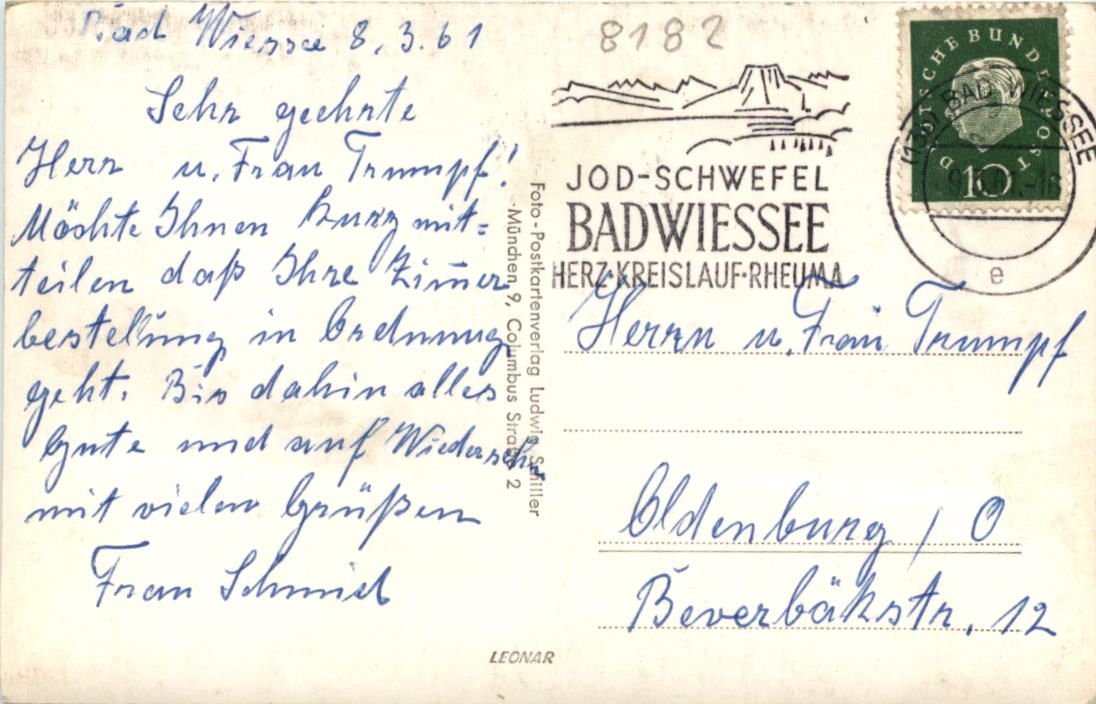 Bad Wiessee 8.3.61
Sehr geehrte
Herr u. Frau Trumpf!
Möchte Ihnen kurz mit=
teilen daß Ihre Zimmer
bestellung in Ordnung
geht. Bis dahin alles
gute und auf Wiedersehn
mit vielen Grüßen
Frau Schmid
8182
JOD-SCHWEFEL
BAD WIESSEE
HERZ·KREISLAUF·RHEUMA
DEUTSCHE BUNDESPOST
10
BAD WIESSEE
e
Foto-Postkartenverlag Ludwig Schiller
München 9, Columbus Straße 2
Herrn u. Frau Trumpf
Oldenburg / O
Beverbäkstr. 12
LEONAR